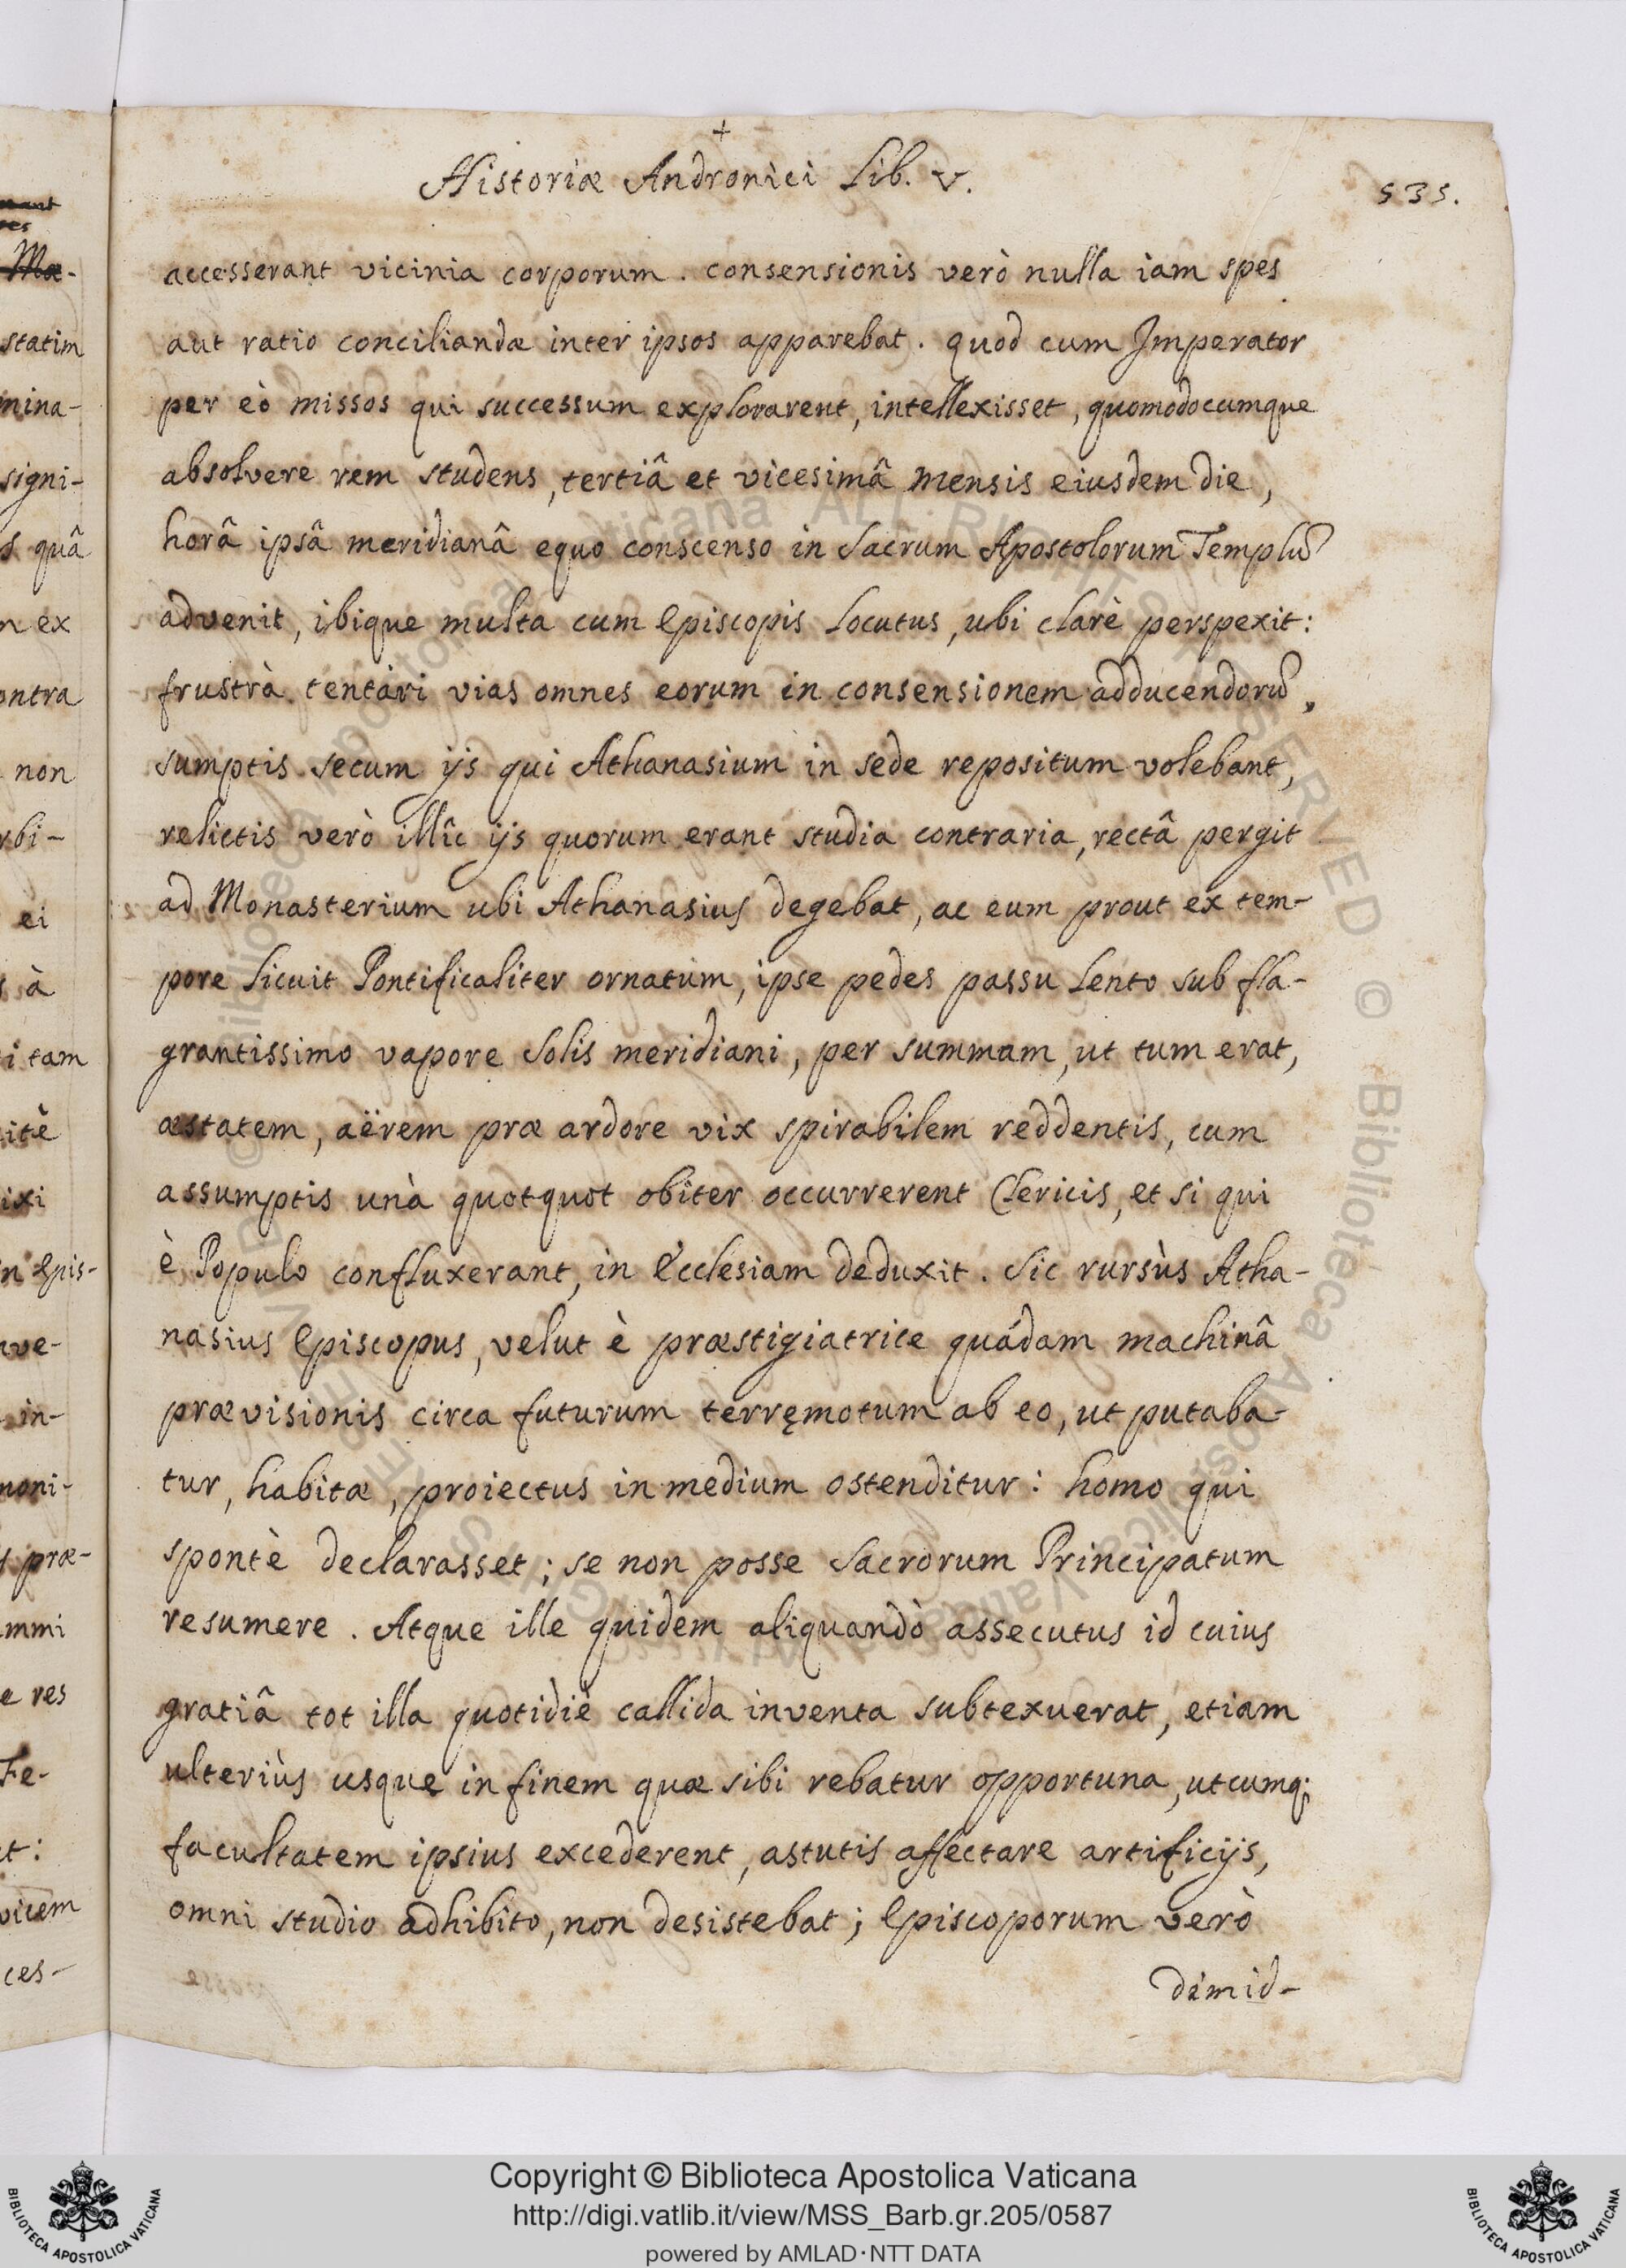 +
Historiæ Andronici Lib. v.
535.
accesserant vicinia corporum. consensionis verò nulla iam spes
aut ratio conciliandæ inter ipsos apparebat. quod cum Imperator
per eò missos qui successum explorarent, intellexisset, quomodocumque
absolvere rem studens, tertiâ et vicesimâ mensis eiusdem die,
horâ ipsâ meridianâ equo conscenso in Sacrum Apostolorum Templũ
advenit, ibique multa cum Episcopis locutus, ubi clarè perspexit:
frustrà tentàri vias omnes eorum in consensionem adducendorũ,
sumptis secum ijs qui Athanasium in sede repositum volebant,
relictis verò illîc ijs quorum erant studia contraria, rectâ pergit
ad Monasterium ubi Athanasius degebat, ac eum prout ex tem-
pore licuit Pontificaliter ornatum, ipse pedes passu lento sub fla-
grantissimo vapore Solis meridiani, per summam, ut tum erat,
æstatem, aërem præ ardore vix spirabilem reddentis, cum
assumptis unà quotquot obiter occurrerent Clericis, et si qui
è Populo confluxerant, in Ecclesiam deduxit. Sic rursùs Atha-
nasius Episcopus, velut è præstigiatrice quádam machinâ
prævisionis circa futurum terręmotum ab eo, ut putaba-
tur, habitæ, proiectus in medium ostenditur: homo qui
spontè declarasset; se non posse Sacrorum Principatum
resumere. Atque ille quidem aliquandò assecutus id cuius
gratiâ tot illa quotidiè callida inventa subtexuerat, etiam
ulteriùs usque in finem quæ sibi rebatur opportuna, utcumq;
facultatem ipsius excederent, astutis affectare artificijs,
omni studio adhibito, non desistebat; Episcoporum verò
dimid-
statim
mina-
signi-
quâ
ex
ontra
non
rbi-
ei
à
tam
itè
ixi
Epis-
ve-
in-
moni-
præ-
mmi
res
Fe-
t:
vicem
ces-
Copyright © Biblioteca Apostolica Vaticana
http://digi.vatlib.it/view/MSS_Barb.gr.205/0587
powered by AMLAD·NTT DATA
BIBLIOTECA APOSTOLICA VATICANA
BIBLIOTECA APOSTOLICA VATICANA